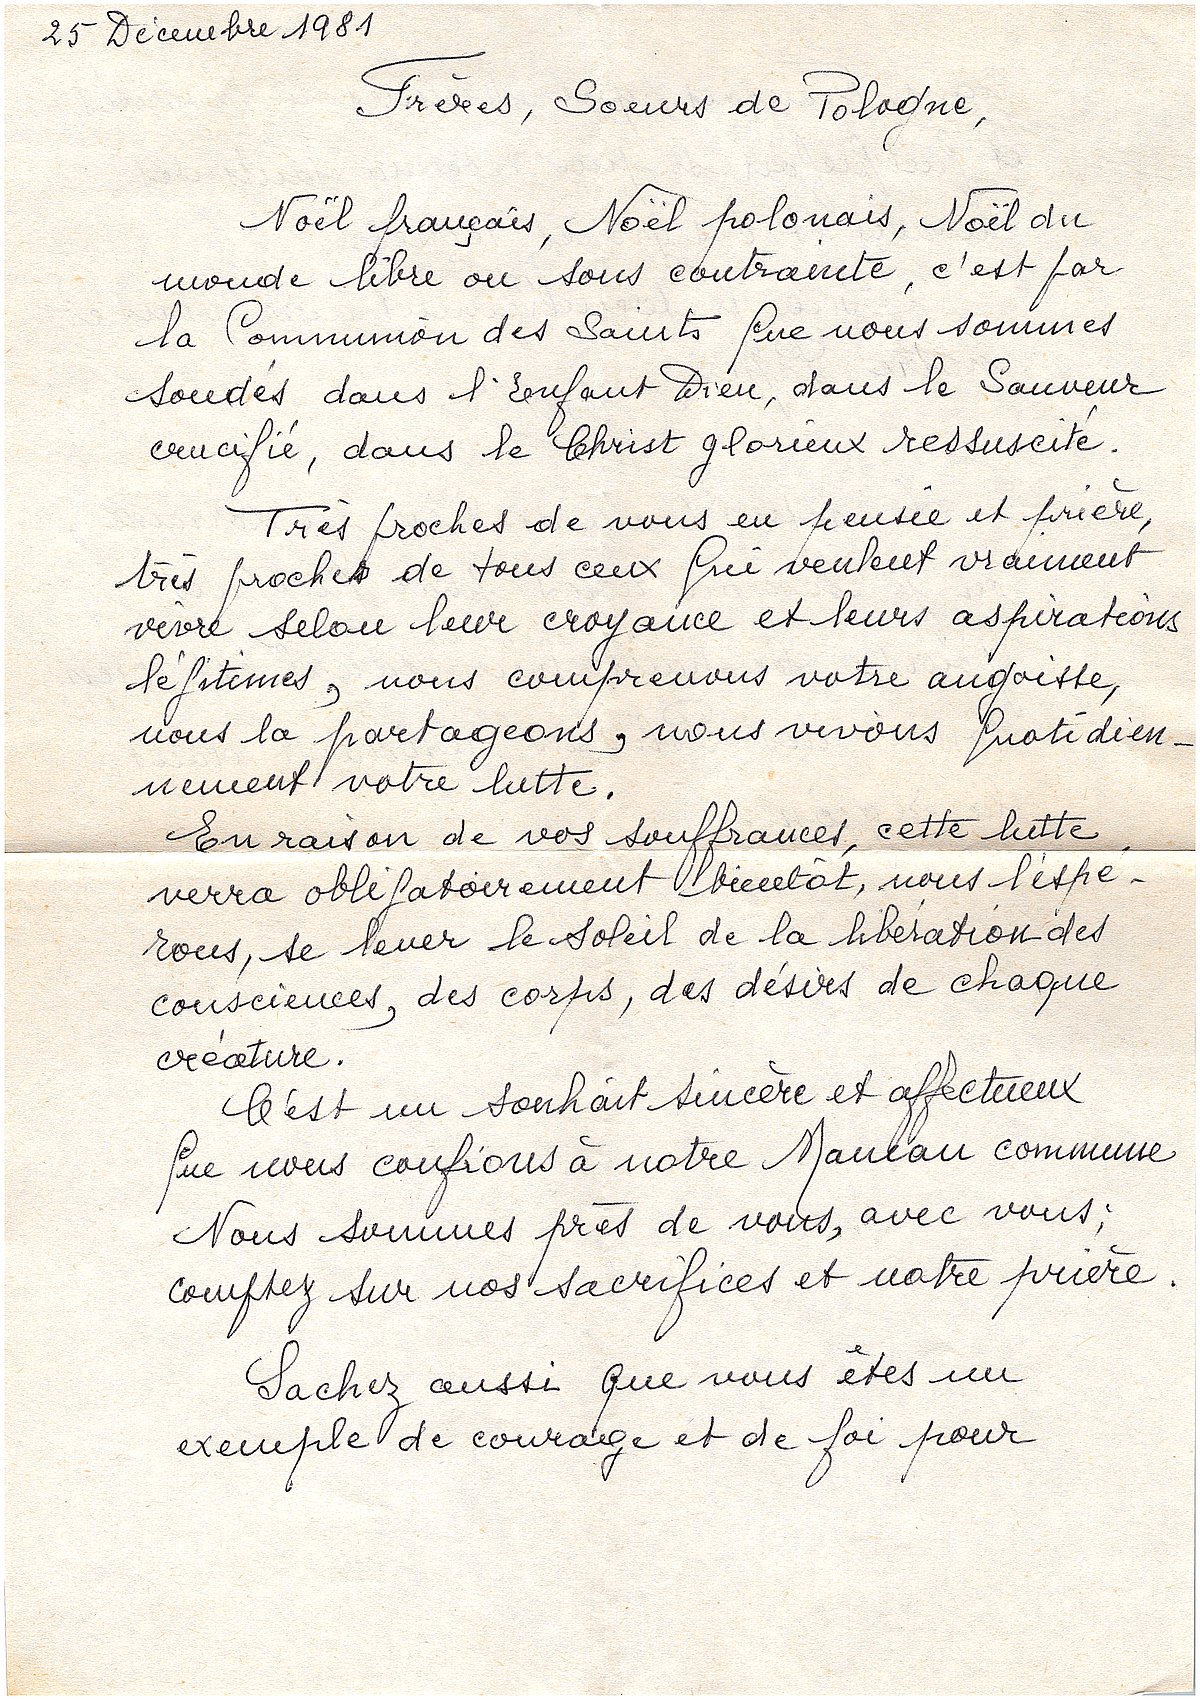 25 Décembre 1981
Frères, Soeurs de Pologne,
Noël français, Noël polonais, Noël du
monde libre ou sous contrainte, c'est par
la Communion des Saints que nous sommes
soudés dans l'Enfant Dieu, dans le Sauveur
crucifié, dans le Christ glorieux ressuscité.
Très proches de vous en pensée et prière,
très proches de tous ceux qui veulent vraiment
vivre selon leur croyance et leurs aspirations
légitimes, nous comprenons votre angoisse,
nous la partageons, nous vivons quotidien-
nement votre lutte.
En raison de vos souffrances, cette lutte
verra obligatoirement bientôt, nous l'espé-
rons, se lever le soleil de la libération des
consciences, des corps, des désirs de chaque
créature.
C'est un souhait sincère et affectueux
que nous confions à notre Maman commune
Nous sommes près de vous, avec vous;
comptez sur nos sacrifices et notre prière.
Sachez aussi que vous êtes un
exemple de courage et de foi pour